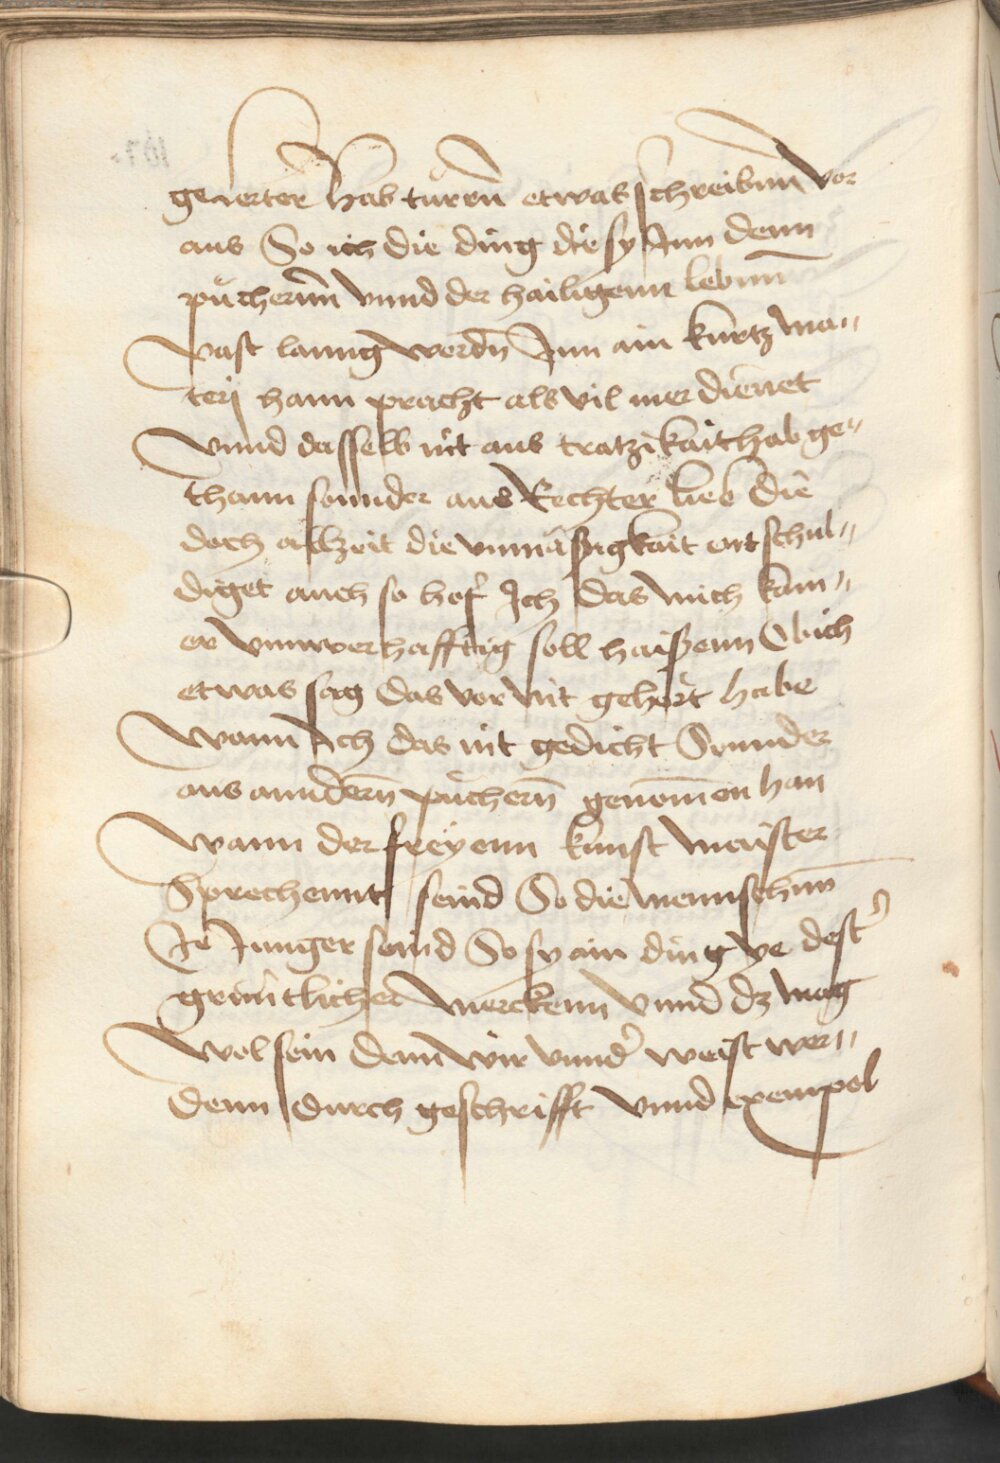 gelerter hab türrn̄ etwas schreibnn vor
aus So ich die ding die sy Inn denn
püchernn̄ vnnd der hailigenn lebnnn̄
vast lanng wordn̄ Inn ain kurtz ma„
terj hann pracht als vil mer dienet
vnnd dasselb nit aus tratzikait hab ge„
thann sonnder aus Rechter lieb die
doch allzeit die vnmässigkait entschul„
diget auch so hof Ich das mich kain„
er vnnwerhafftig soll haissenn Ob ich
etwas sag das vor nit gehört habe
Wann Ich das nit gedicht Sonnder
aus anndern̄ püchern̄ genom̄en han
Wann der freyenn kunst maister
Sprechennt seind So die mennschnn̄
Ie Iunger seind So sy ain ding ye dest
grüntlicher merckenn vnnd dz mag
Wol sein denn wir vnnd weist wer„
denn durch geschrifft vnnd exempel